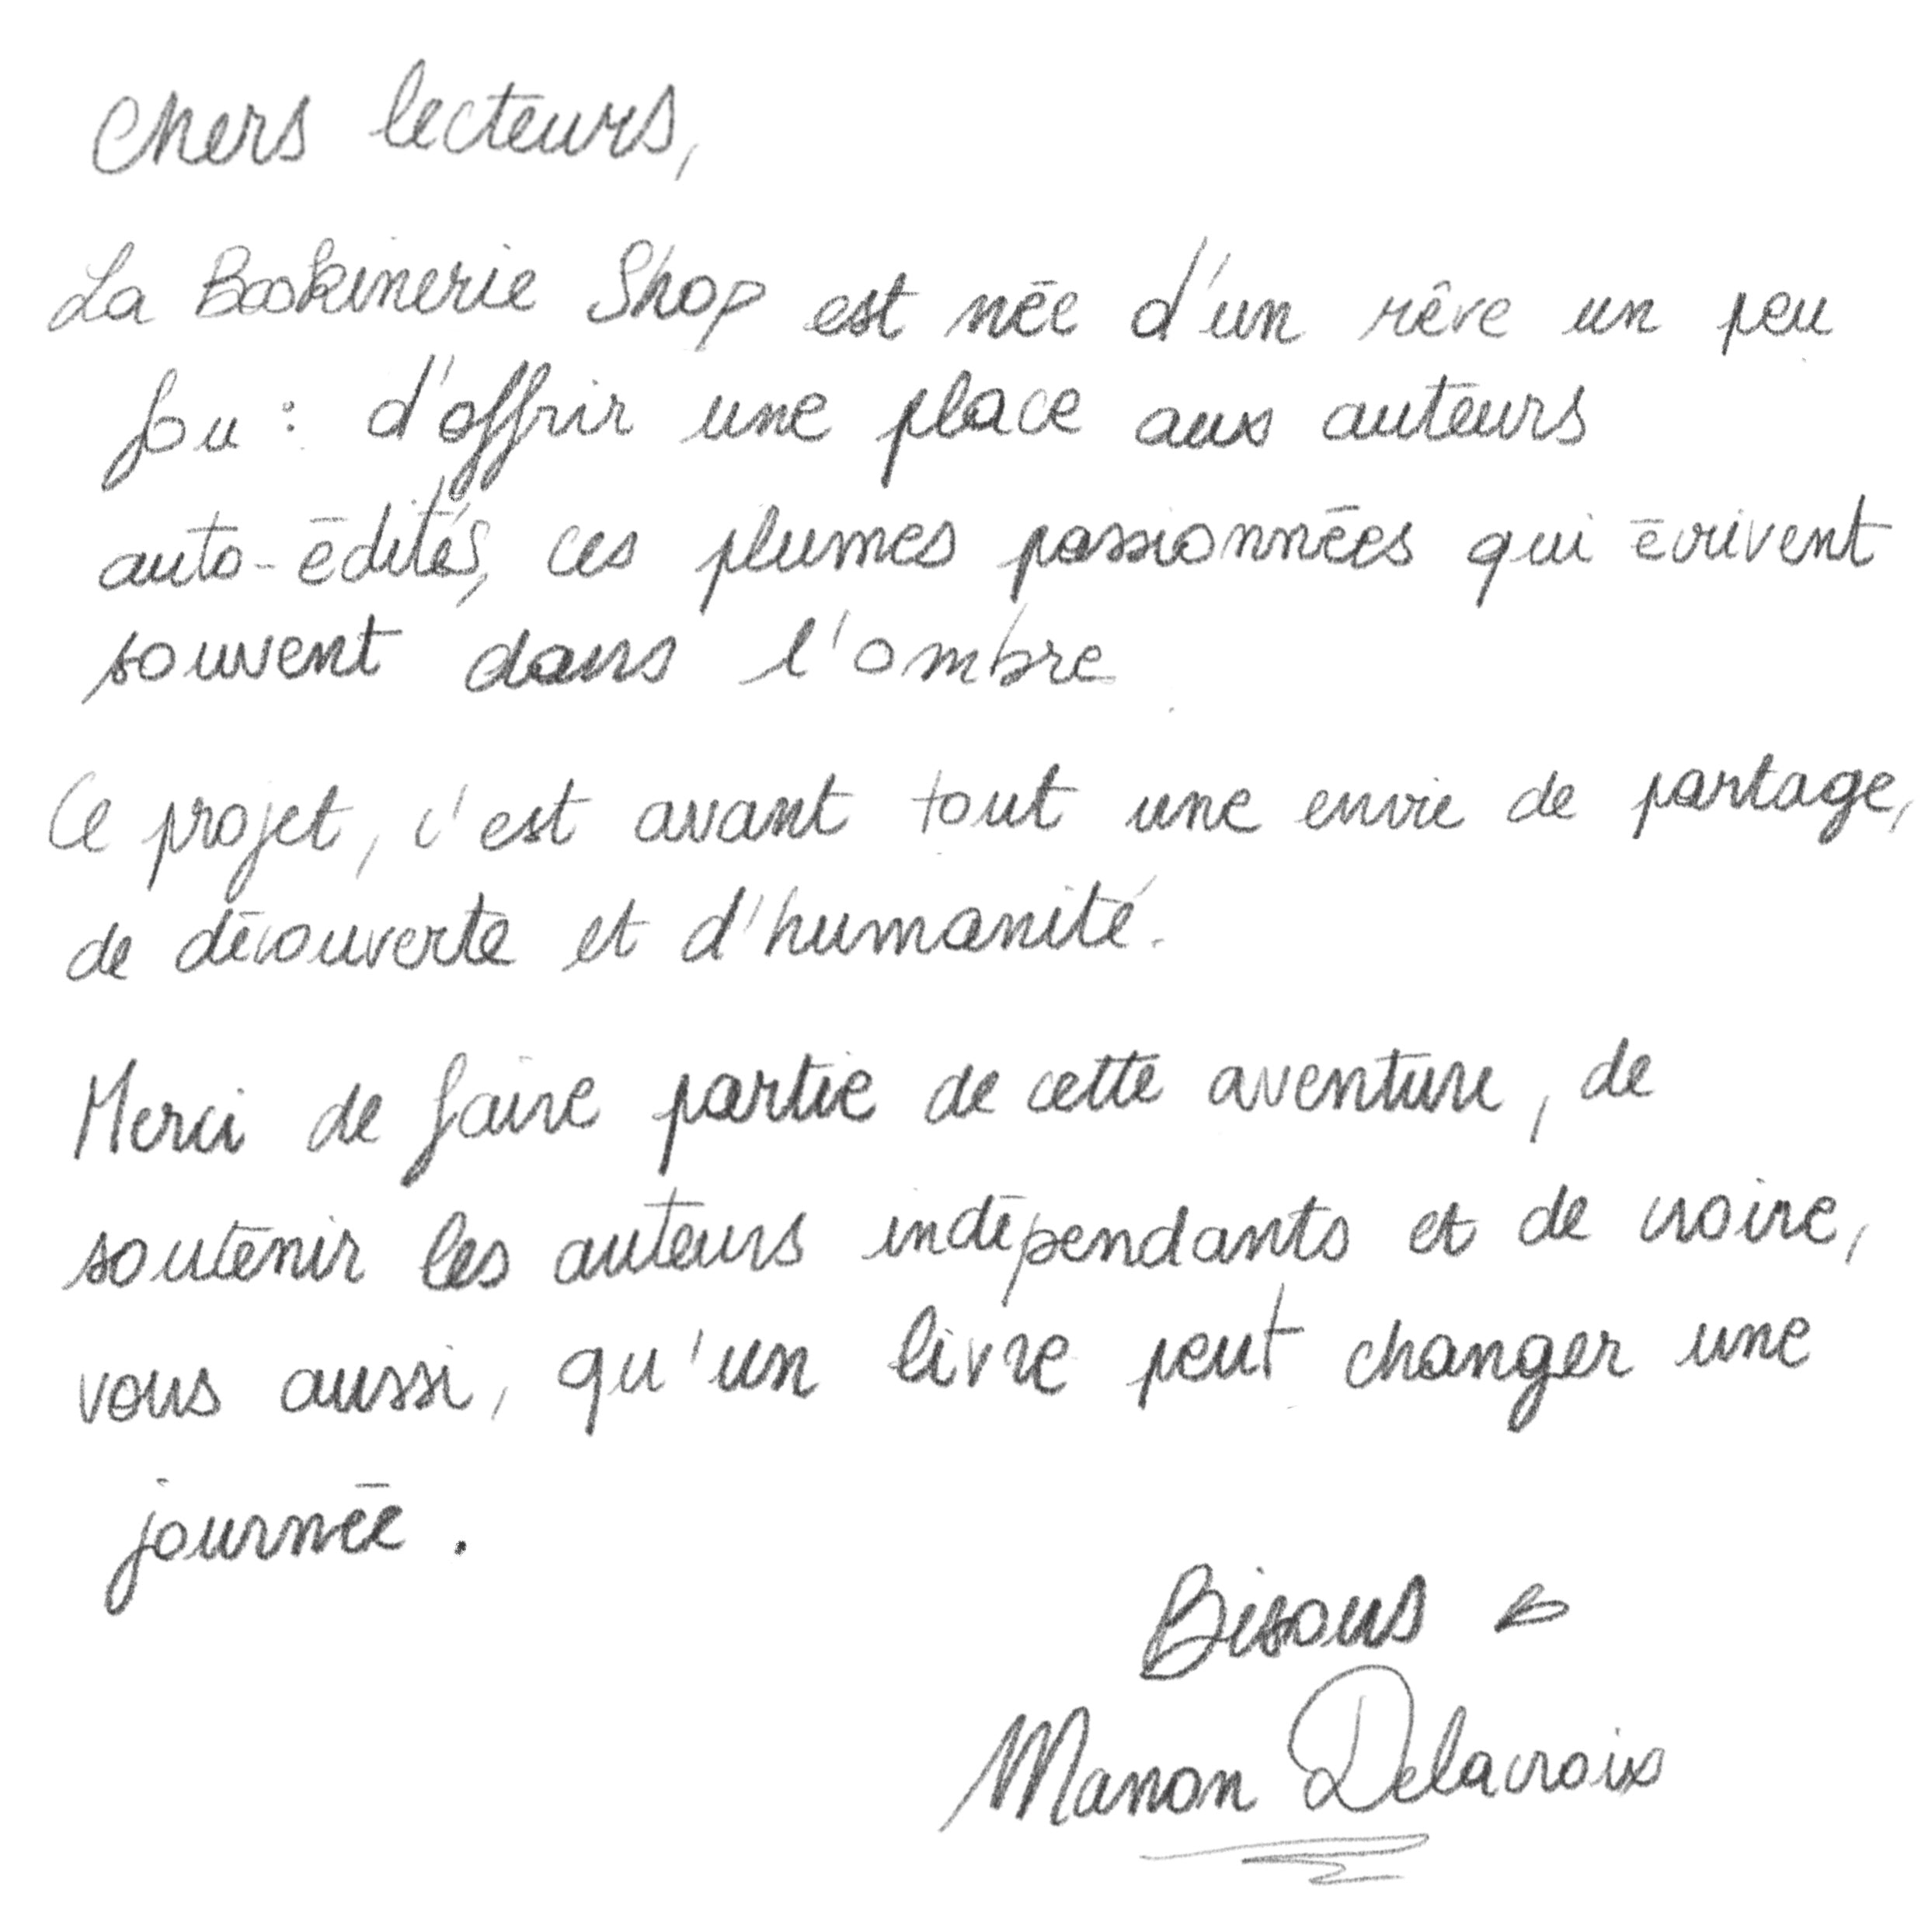 Chers lecteurs,
La Bookinerie Shop est née d'un rêve un peu
fou : d'offrir une place aux auteurs
auto-édités, ces plumes passionnées qui écrivent
souvent dans l'ombre.
Ce projet, c'est avant tout une envie de partage,
de découverte et d'humanité.
Merci de faire partie de cette aventure, de
soutenir les auteurs indépendants et de croire,
vous aussi, qu'un livre peut changer une
journée.
Bisous
Manon Delacroix